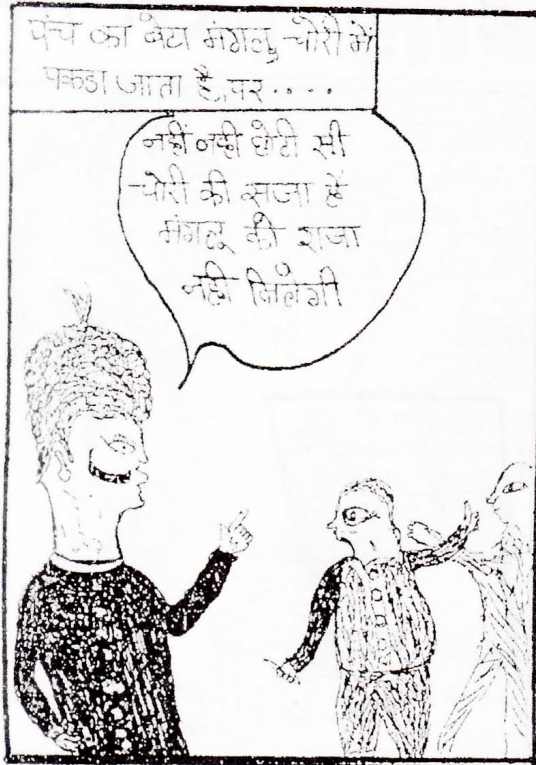 पंच का बेटा मंगलू चोरी में
पकडा जाता है, पर....
नहीं नही छोटी सी
चोरी की सजा है
मंगलू को सजा
नही मिलेगी